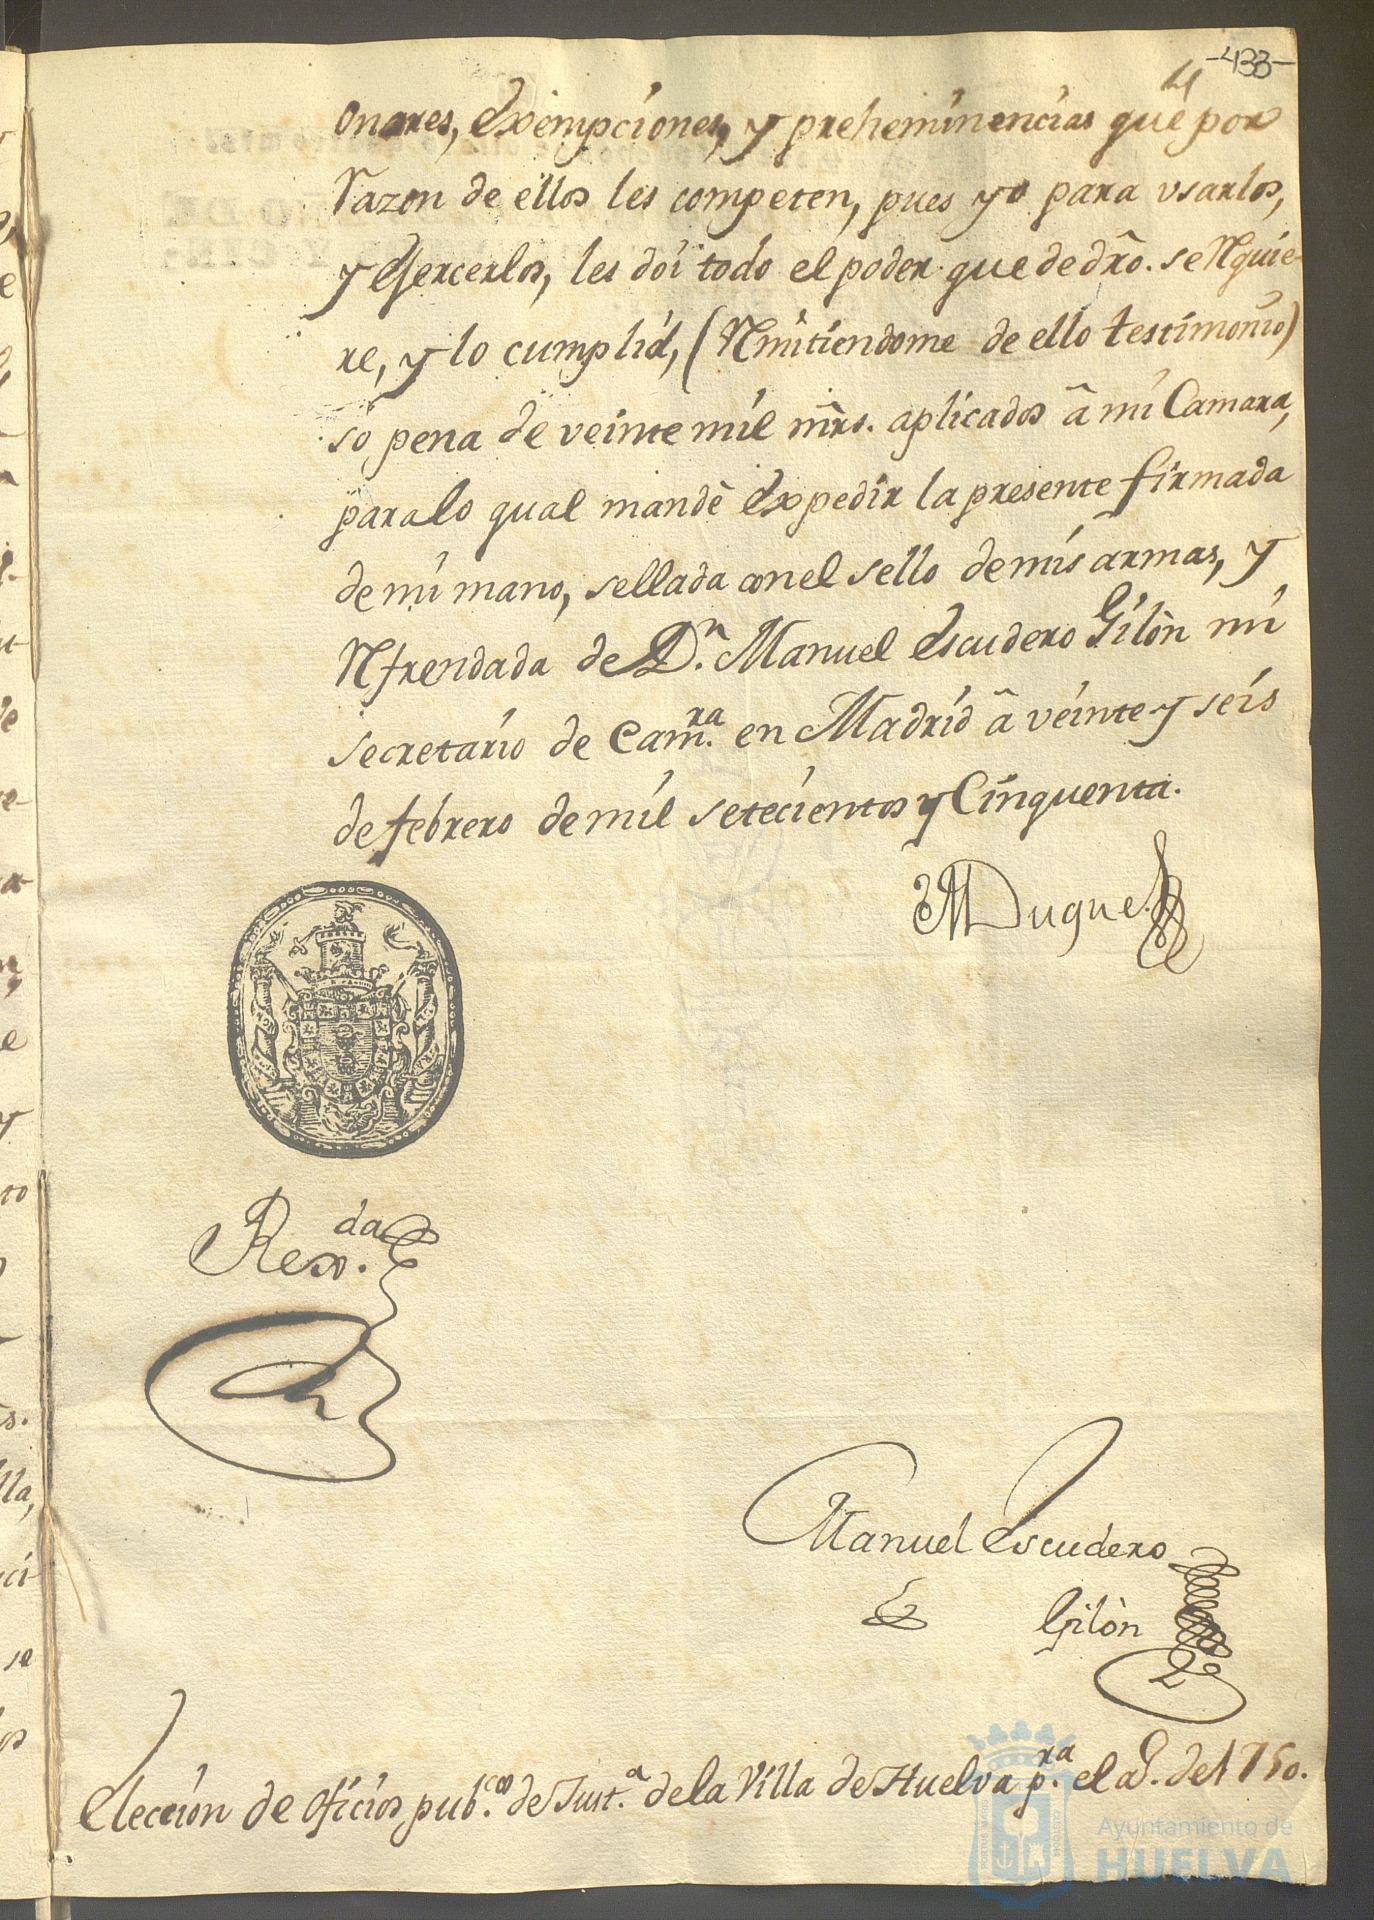 -433-
4
onores, exempciones, y preheminencias que por
razon de ellos les competen, pues yo para vsarlos,
y exercerlos, les doi todo el poder que de dro. se requie-
re, y lo cumplid, (remitiendome de ello testimonio)
so pena de veinte mil mrs. aplicados â mi Camara,
para lo qual mandè expedir la presente firmada
de mi mano, sellada con el sello de mis armas, y
refrendada de Dn. Manuel Escudero Gilòn mi
secretario de Camra. en Madrid â veinte y seis
de febrero de mil setecientos y Cinquenta.
Duque
Rexda.
Manuel Escudero
Gilòn
Elección de oficios pubcos. de Justa. de la Villa de Huelva pra. el aº. de 1750.
Ayuntamiento de
HUELVA